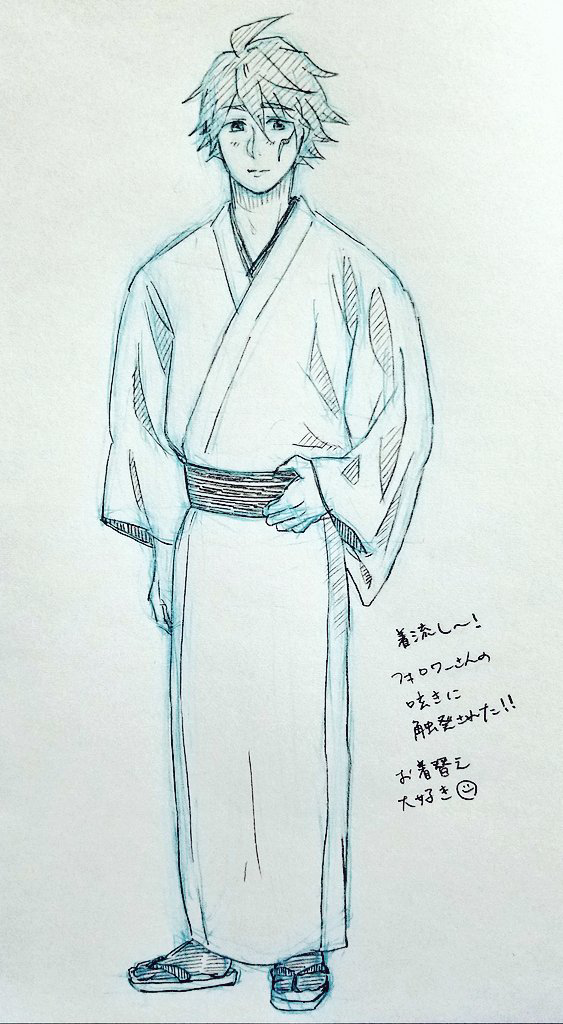 着流し〜!
フォロワーさんの
呟きに
触発された!!
お着替え
大好き☺